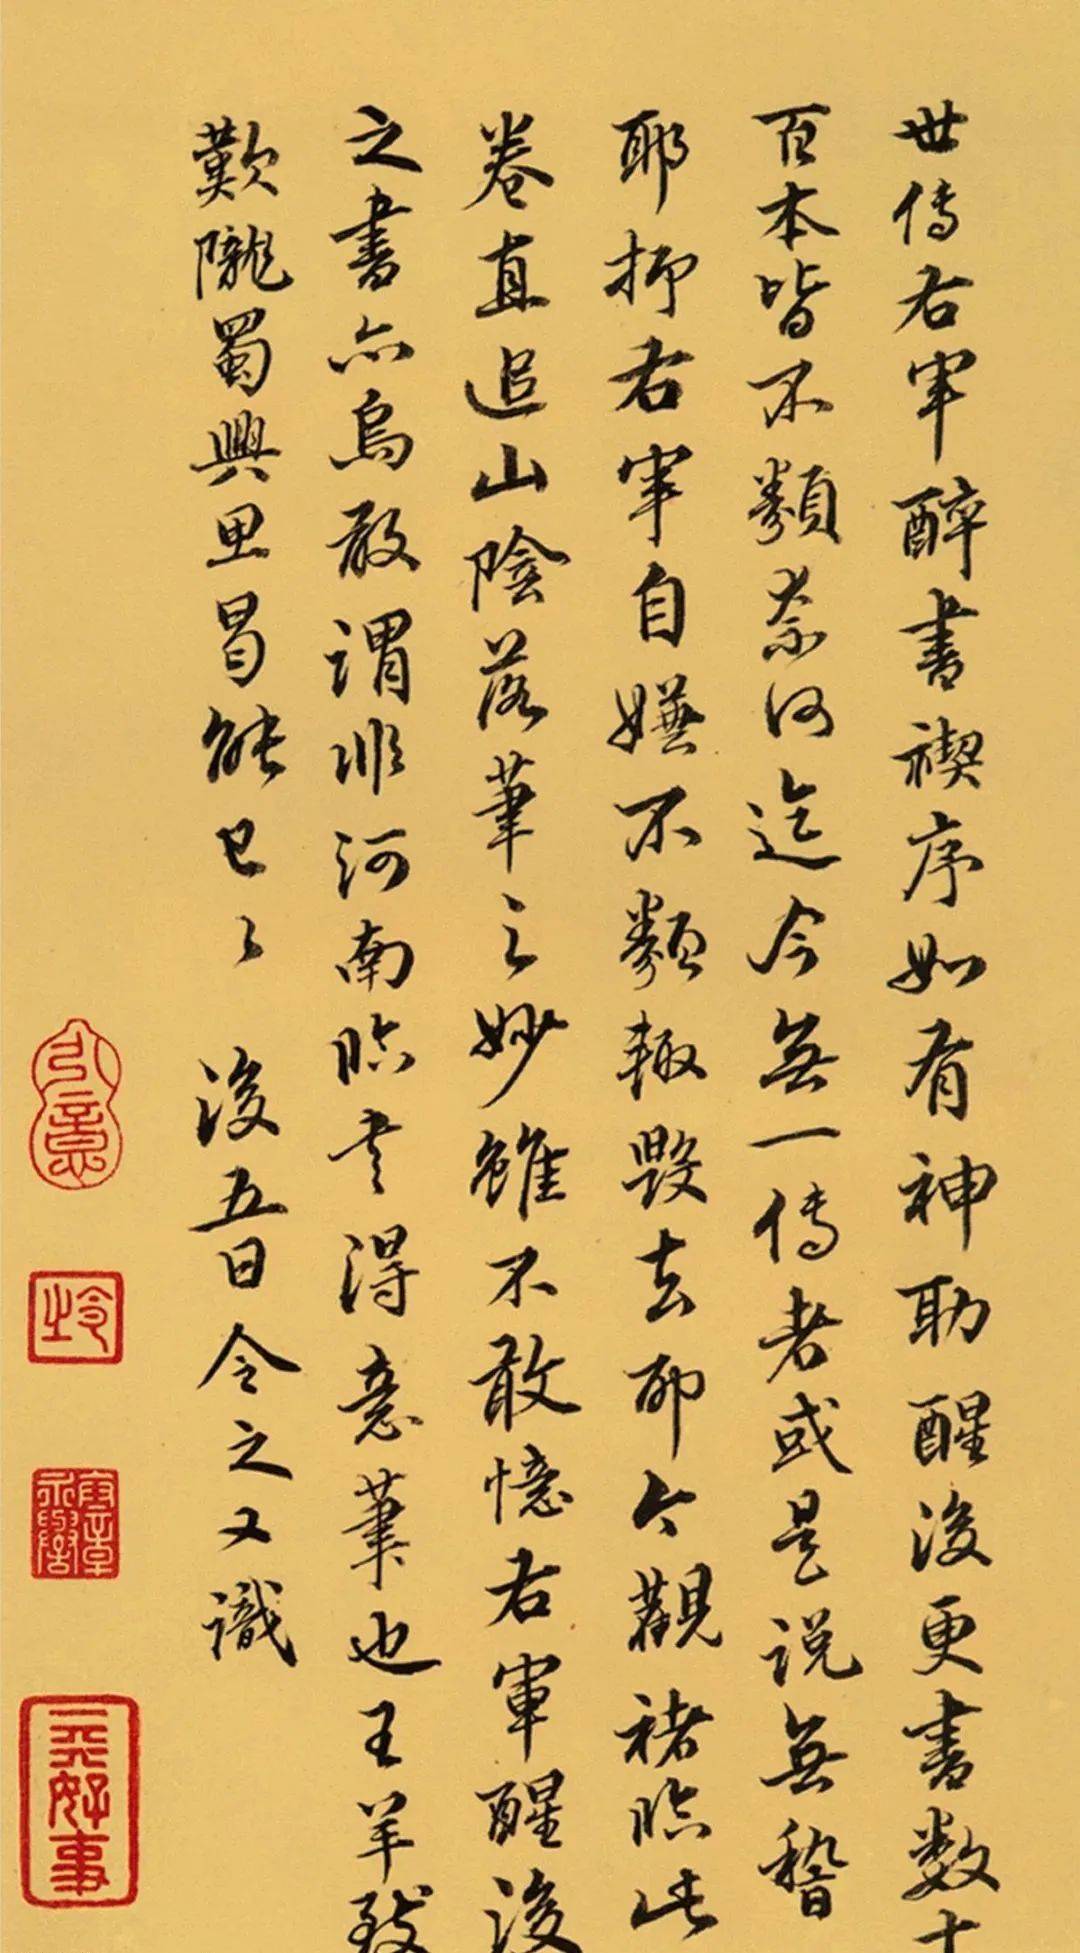 世傳右军醉書禊序如有神助醒後更書数十
百本皆不類奈何迄今無一傳者或是説無稽
耶抑右军自嫌不類輙毁去耶今觀褚臨此
卷直追山陰落筆之妙雖不敢憶右軍醒後
之書亦烏敢謂非河南臨書得意筆也王羊致
歎隴蜀興思曷能已已 後五日令之又識
一天好事